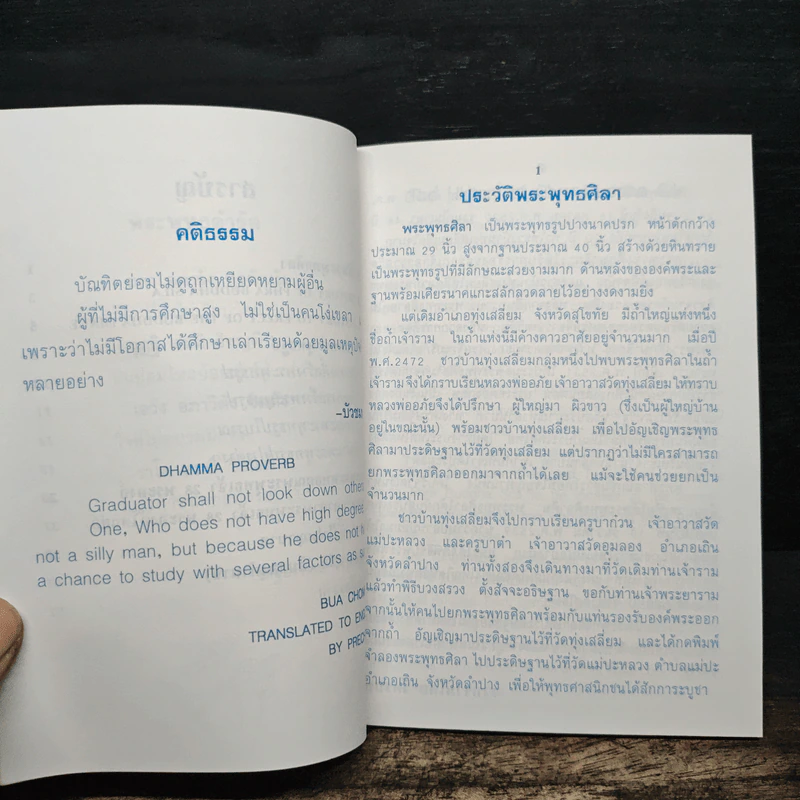 คติธรรม
บัณฑิตย่อมไม่ดูถูกเหยียดหยามผู้อื่น
ผู้ที่ไม่มีการศึกษาสูง ไม่ใช่เป็นคนโง่เขลา
เพราะว่าไม่มีโอกาสได้ศึกษาเล่าเรียนด้วยมูลเหตุปัจ
หลายอย่าง
–บัวชม
DHAMMA PROVERB
Graduator shall not look down other
One, Who does not have high degree
not a silly man, but because he does not
a chance to study with several factors as
BUA CHO
TRANSLATED TO EN
BY PRE
1
ประวัติพระพุทธศิลา
พระพุทธศิลา เป็นพระพุทธรูปปางนาคปรก หน้าตักกว้าง
ประมาณ 29 นิ้ว สูงจากฐานประมาณ 40 นิ้ว สร้างด้วยหินทราย
เป็นพระพุทธรูปที่มีลักษณะสวยงามมาก ด้านหลังขององค์พระและ
ฐานพร้อมเศียรนาคแกะสลักลวดลายไว้อย่างงดงามยิ่ง
แต่เดิมอำเภอทุ่งเสลี่ยม จังหวัดสุโขทัย มีถ้ำใหญ่แห่งหนึ่ง
ชื่อถ้ำเจ้าราม ในถ้ำแห่งนี้มีค้างคาวอาศัยอยู่จำนวนมาก เมื่อปี
พ.ศ.2472 ชาวบ้านทุ่งเสลี่ยมกลุ่มหนึ่งไปพบพระพุทธศิลาในถ้ำ
เจ้ารามจึงได้กราบเรียนหลวงพ่ออภัย เจ้าอาวาสวัดทุ่งเสลี่ยมให้ทราบ
หลวงพ่ออภัยจึงได้ปรึกษา ผู้ใหญ่มา ผิวขาว (ซึ่งเป็นผู้ใหญ่บ้าน
อยู่ในขณะนั้น) พร้อมชาวบ้านทุ่งเสลี่ยม เพื่อไปอัญเชิญพระพุทธ
ศิลามาประดิษฐานไว้ที่วัดทุ่งเสลี่ยม แต่ปรากฏว่าไม่มีใครสามารถ
ยกพระพุทธศิลาออกมาจากถ้ำได้เลย แม้จะใช้คนช่วยยกเป็น
จำนวนมาก
ชาวบ้านทุ่งเสลี่ยมจึงไปกราบเรียนครูบาก๋วน เจ้าอาวาสวัด
แม่ปะหลวง และครูบาตำ เจ้าอาวาสวัดอุมลอง อำเภอเถิน
จังหวัดลำปาง ท่านทั้งสองจึงเดินทางมาที่วัดเดิมท่านเจ้าราม
แล้วทำพิธีบวงสรวง ตั้งสัจจะอธิษฐาน ขอกับท่านเจ้าพระยาราม
จากนั้นให้คนไปยกพระพุทธศิลาพร้อมกับแท่นรองรับองค์พระออก
จากถ้ำ อัญเชิญมาประดิษฐานไว้ที่วัดทุ่งเสลี่ยม และได้กดพิมพ์
จำลองพระพุทธศิลา ไปประดิษฐานไว้ที่วัดแม่ปะหลวง ตำบลแม่ปะ
อำเภอเถิน จังหวัดลำปาง เพื่อให้พุทธศาสนิกชนได้สักการะบูชา